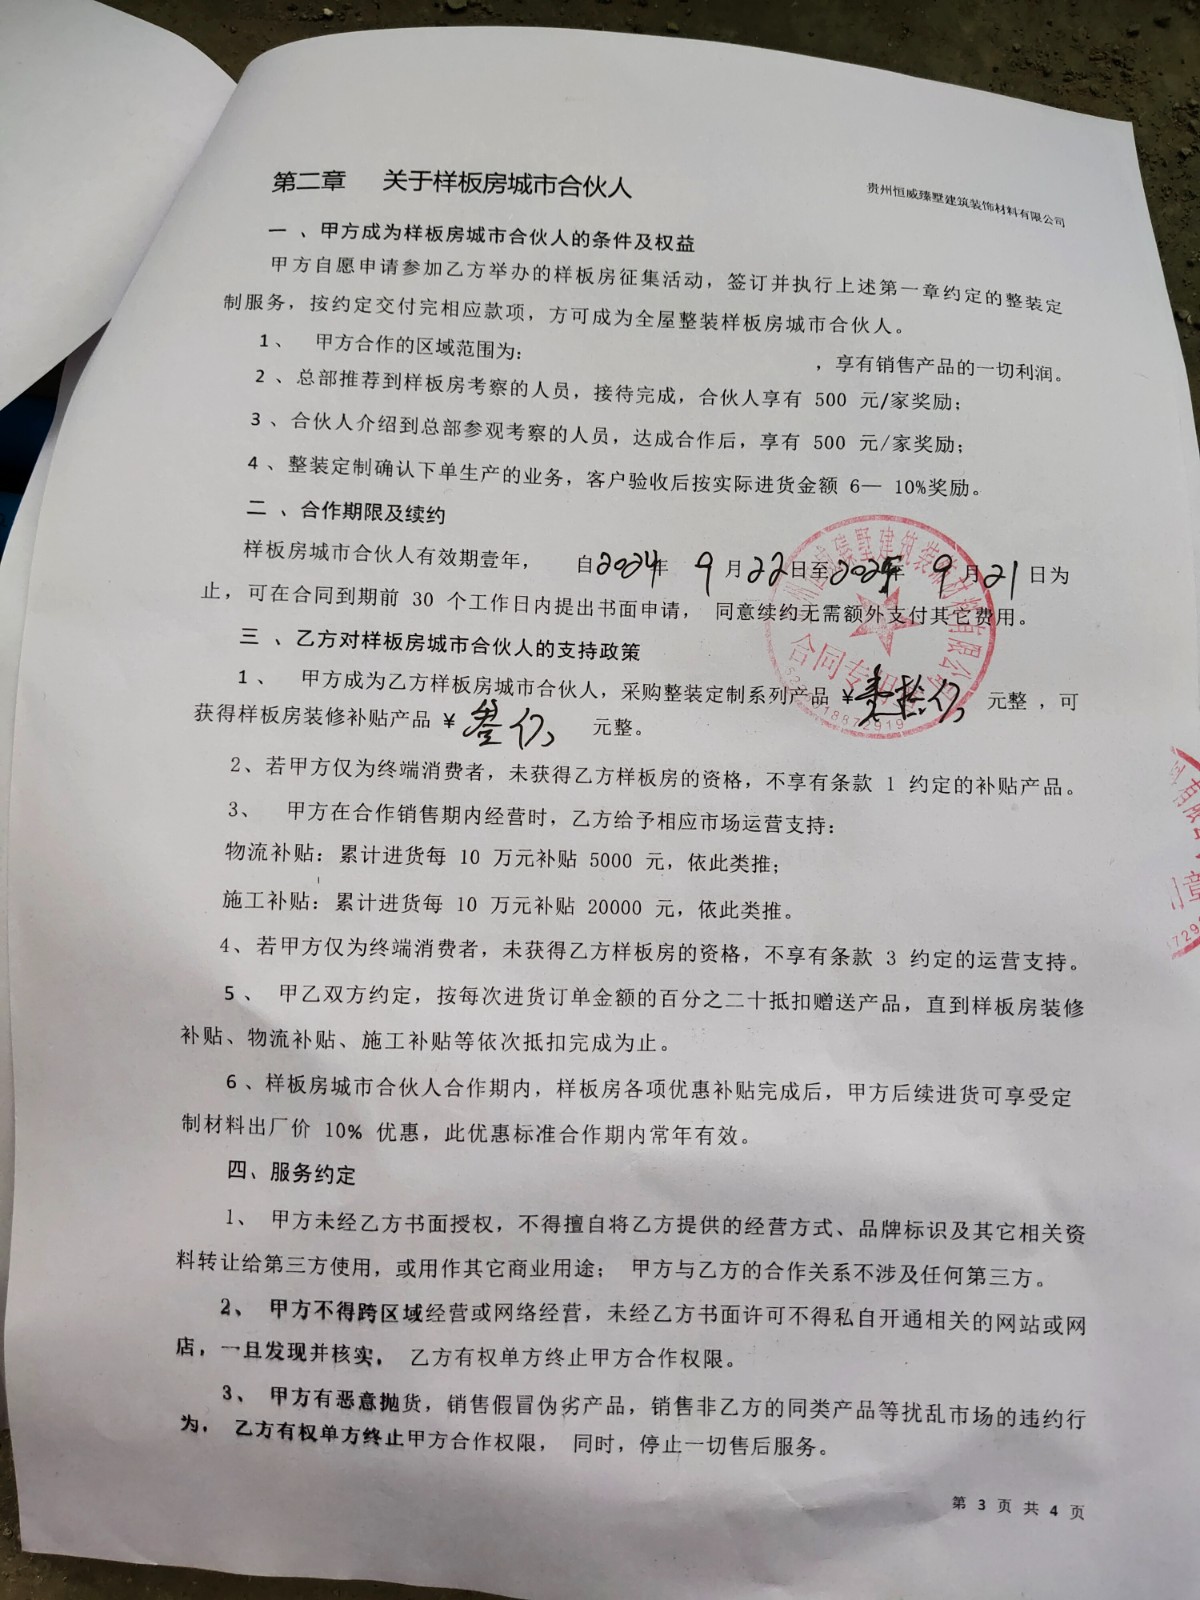 贵州恒威臻墅建筑装饰材料有限公司
第二章 关于样板房城市合伙人
一 、甲方成为样板房城市合伙人的条件及权益
甲方自愿申请参加乙方举办的样板房征集活动，签订并执行上述第一章约定的整装定
制服务，按约定交付完相应款项，方可成为全屋整装样板房城市合伙人。
1、 甲方合作的区域范围为： ，享有销售产品的一切利润。
2、总部推荐到样板房考察的人员，接待完成，合伙人享有 500 元/家奖励；
3、合伙人介绍到总部参观考察的人员，达成合作后，享有 500 元/家奖励；
4、整装定制确认下单生产的业务，客户验收后按实际进货金额 6— 10%奖励。
二 、合作期限及续约
样板房城市合伙人有效期壹年， 自2024年 9月22日至2025年 9月21日为
止，可在合同到期前 30 个工作日内提出书面申请， 同意续约无需额外支付其它费用。
三 、乙方对样板房城市合伙人的支持政策
1、 甲方成为乙方样板房城市合伙人，采购整装定制系列产品 ¥ 拾仟 元整 ，可
获得样板房装修补贴产品 ¥ 叁仟 元整。
2、若甲方仅为终端消费者，未获得乙方样板房的资格，不享有条款 1 约定的补贴产品。
3、 甲方在合作销售期内经营时，乙方给予相应市场运营支持：
物流补贴：累计进货每 10 万元补贴 5000 元，依此类推；
施工补贴：累计进货每 10 万元补贴 20000 元，依此类推。
4、若甲方仅为终端消费者，未获得乙方样板房的资格，不享有条款 3 约定的运营支持。
5、 甲乙双方约定，按每次进货订单金额的百分之二十抵扣赠送产品，直到样板房装修
补贴、物流补贴、施工补贴等依次抵扣完成为止。
6、样板房城市合伙人合作期内，样板房各项优惠补贴完成后，甲方后续进货可享受定
制材料出厂价 10% 优惠，此优惠标准合作期内常年有效。
四、服务约定
1、 甲方未经乙方书面授权，不得擅自将乙方提供的经营方式、品牌标识及其它相关资
料转让给第三方使用，或用作其它商业用途； 甲方与乙方的合作关系不涉及任何第三方。
2、 甲方不得跨区域经营或网络经营，未经乙方书面许可不得私自开通相关的网站或网
店，一旦发现并核实， 乙方有权单方终止甲方合作权限。
3、 甲方有恶意抛货，销售假冒伪劣产品，销售非乙方的同类产品等扰乱市场的违约行
为， 乙方有权单方终止甲方合作权限， 同时，停止一切售后服务。
第 3 页 共 4 页